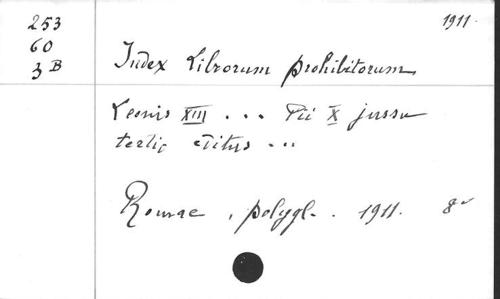 253
60
3 B
1911.
Index Librorum prohibitorum
Leonis XIII ... Pii X jussu
tertio editus ...
Romae, polygl. . 1911. 8°